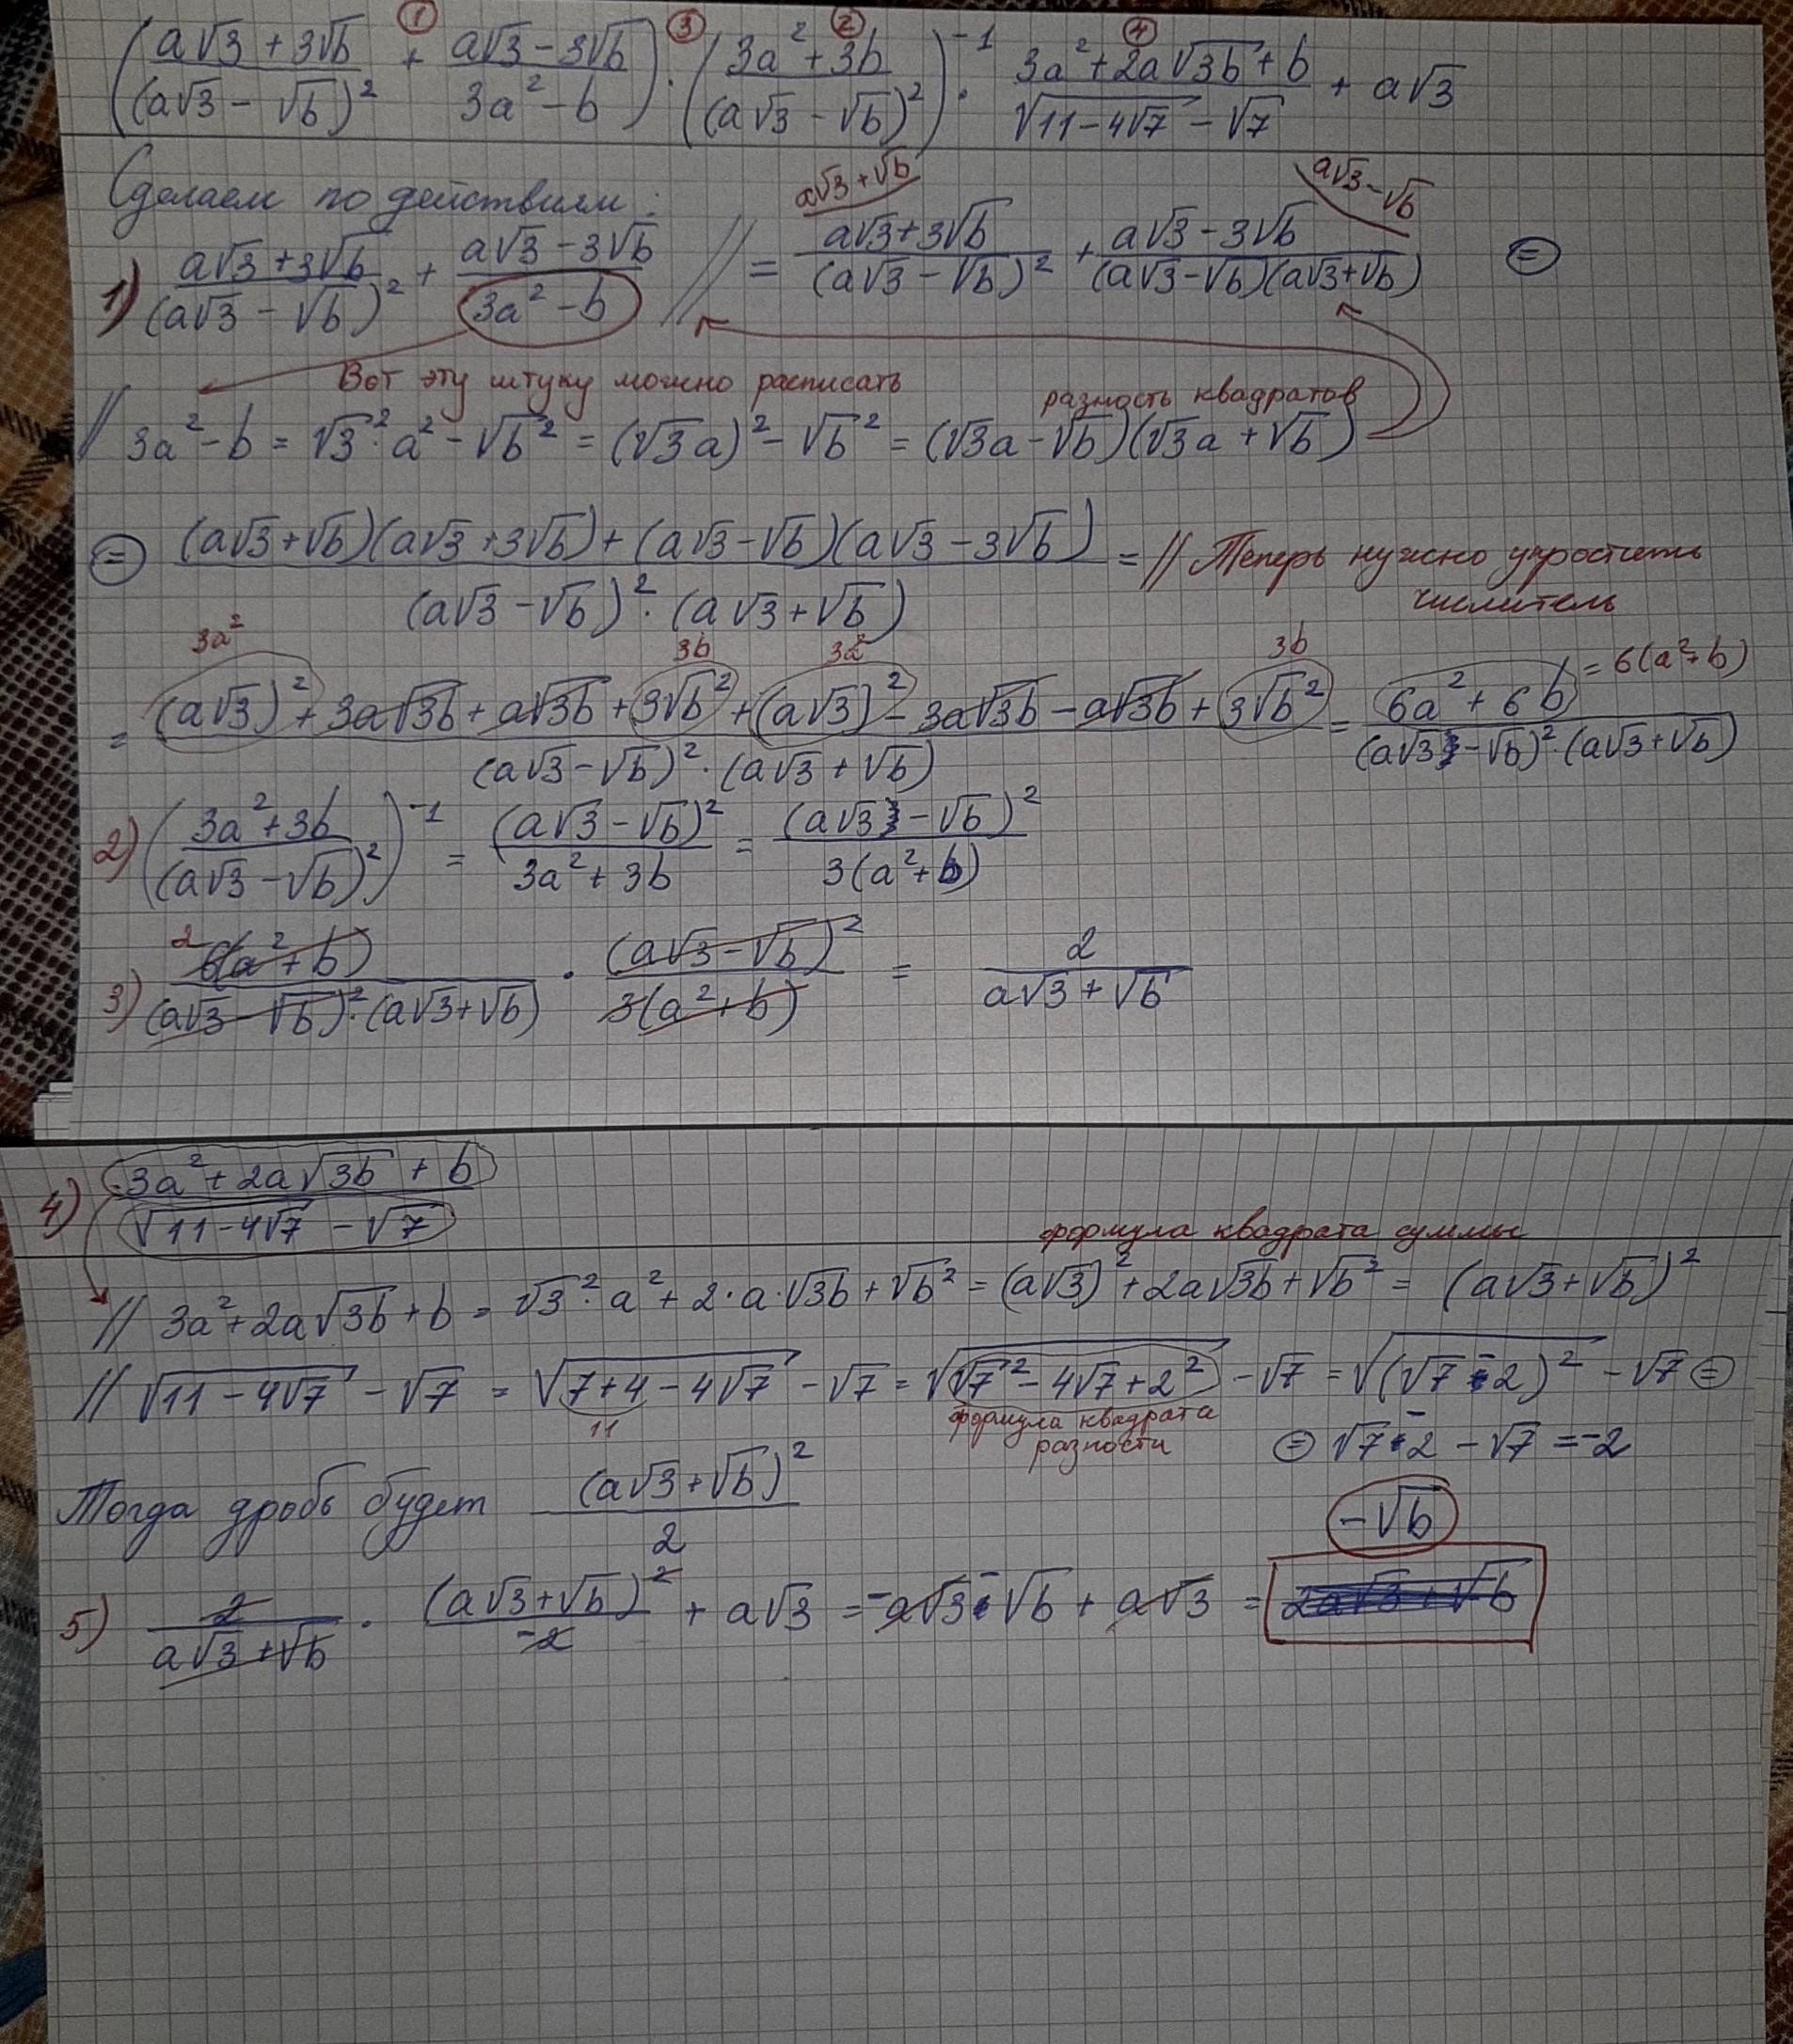 ① ③ ② ④
((a√3 + 3√b)/(a√3 − √b)² + (a√3 − 3√b)/(3a² − b)) · ((3a² + 3b)/(a√3 − √b)²)⁻¹ · (3a² + 2a√3b + b)/(√(11 − 4√7) − √7) + a√3
Сделаем по действиям:
a√3 + √b a√3 − √b
1) (a√3 + 3√b)/(a√3 − √b)² + (a√3 − 3√b)/(3a² − b) // = (a√3 + 3√b)/(a√3 − √b)² + (a√3 − 3√b)/((a√3 − √b)(a√3 + √b)) ⊜
Вот эту штуку можно расписать разность квадратов
// 3a² − b = √3² · a² − √b² = (√3a)² − √b² = (√3a − √b)(√3a + √b)
⊜ ((a√3 + √b)(a√3 + 3√b) + (a√3 − √b)(a√3 − 3√b))/((a√3 − √b)² · (a√3 + √b)) = // Теперь нужно упростить
числитель
3a² 3b 3a² 3b
= ((a√3)² + 3a√3b + a√3b + 3√b² + (a√3)² − 3a√3b − a√3b + 3√b²)/((a√3 − √b)² · (a√3 + √b)) = (6a² + 6b)/((a√3 − √b)² · (a√3 + √b)) = 6(a² + b)
2) ((3a² + 3b)/(a√3 − √b)²)⁻¹ = (a√3 − √b)²/(3a² + 3b) = (a√3 − √b)²/(3(a² + b))
2
3) 6(a² + b)/((a√3 − √b)² · (a√3 + √b)) · (a√3 − √b)²/(3(a² + b)) = 2/(a√3 + √b)
4) (3a² + 2a√3b + b)/(√(11 − 4√7) − √7)
формула квадрата суммы
// 3a² + 2a√3b + b = √3² · a² + 2 · a · √3b + √b² = (a√3)² + 2a√3b + √b² = (a√3 + √b)²
// √(11 − 4√7) − √7 = √(7 + 4 − 4√7) − √7 = √(√7² − 4√7 + 2²) − √7 = √((√7 − 2)²) − √7 ⊜
11 формула квадрата
разности
⊜ √7 − 2 − √7 = −2
Тогда дробь будет (a√3 + √b)²/2
−√b
5) 2/(a√3 + √b) · (a√3 + √b)²/−2 + a√3 = −a√3 − √b + a√3 = 2a√3 + √b